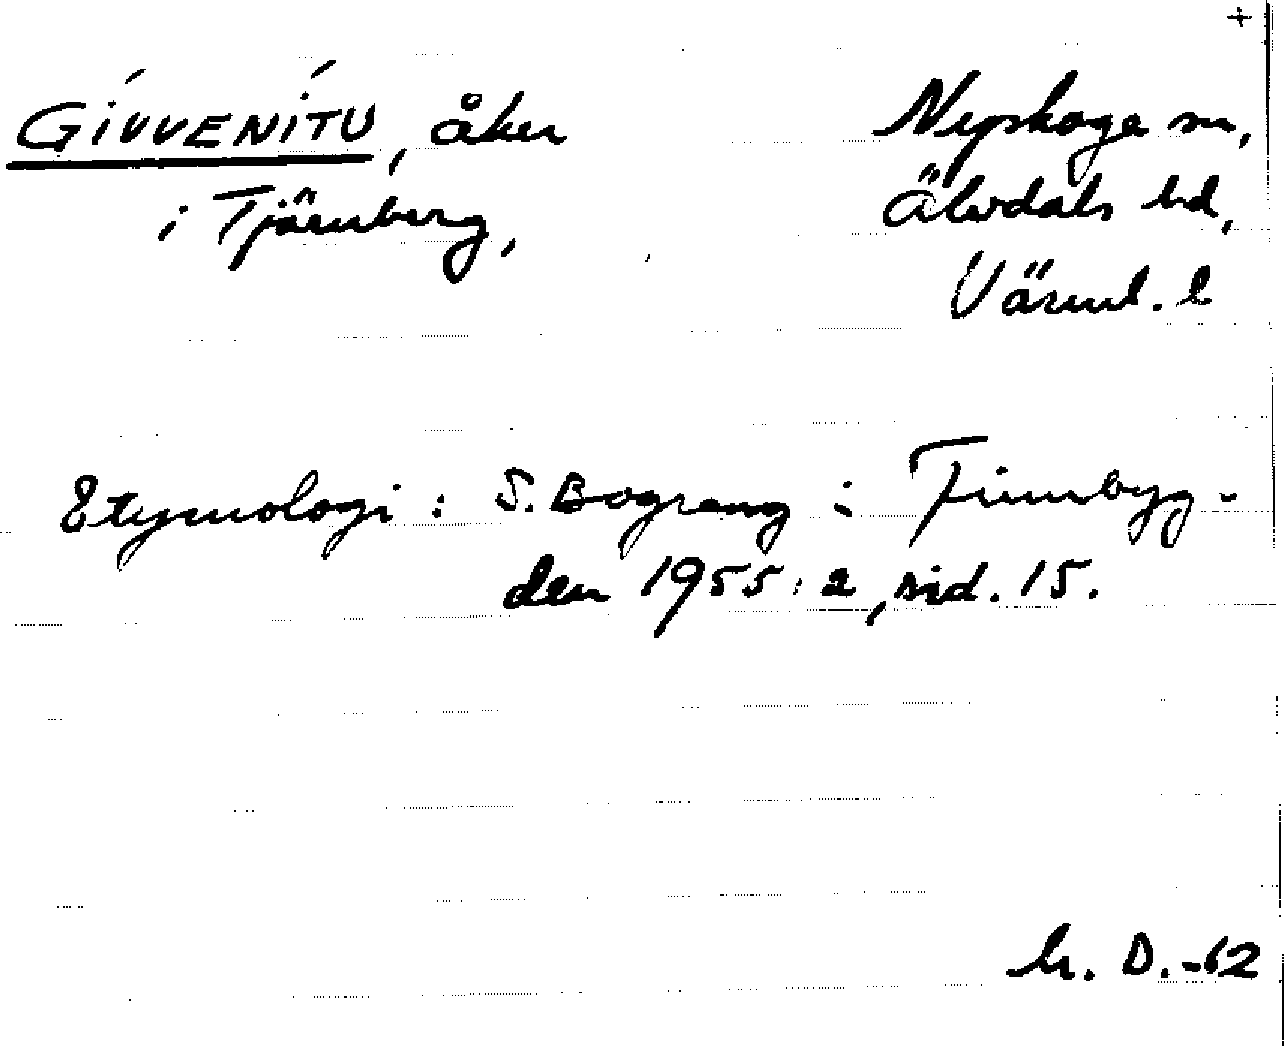 +
GÍVVENÍTU, åker
i Tjärnberg,
Nyskoga sn,
Älvdals hd,
Värml. l
Etymologi: S. Bograng i Finnbyg-
den 1955:2, sid. 15.
h. D. -62